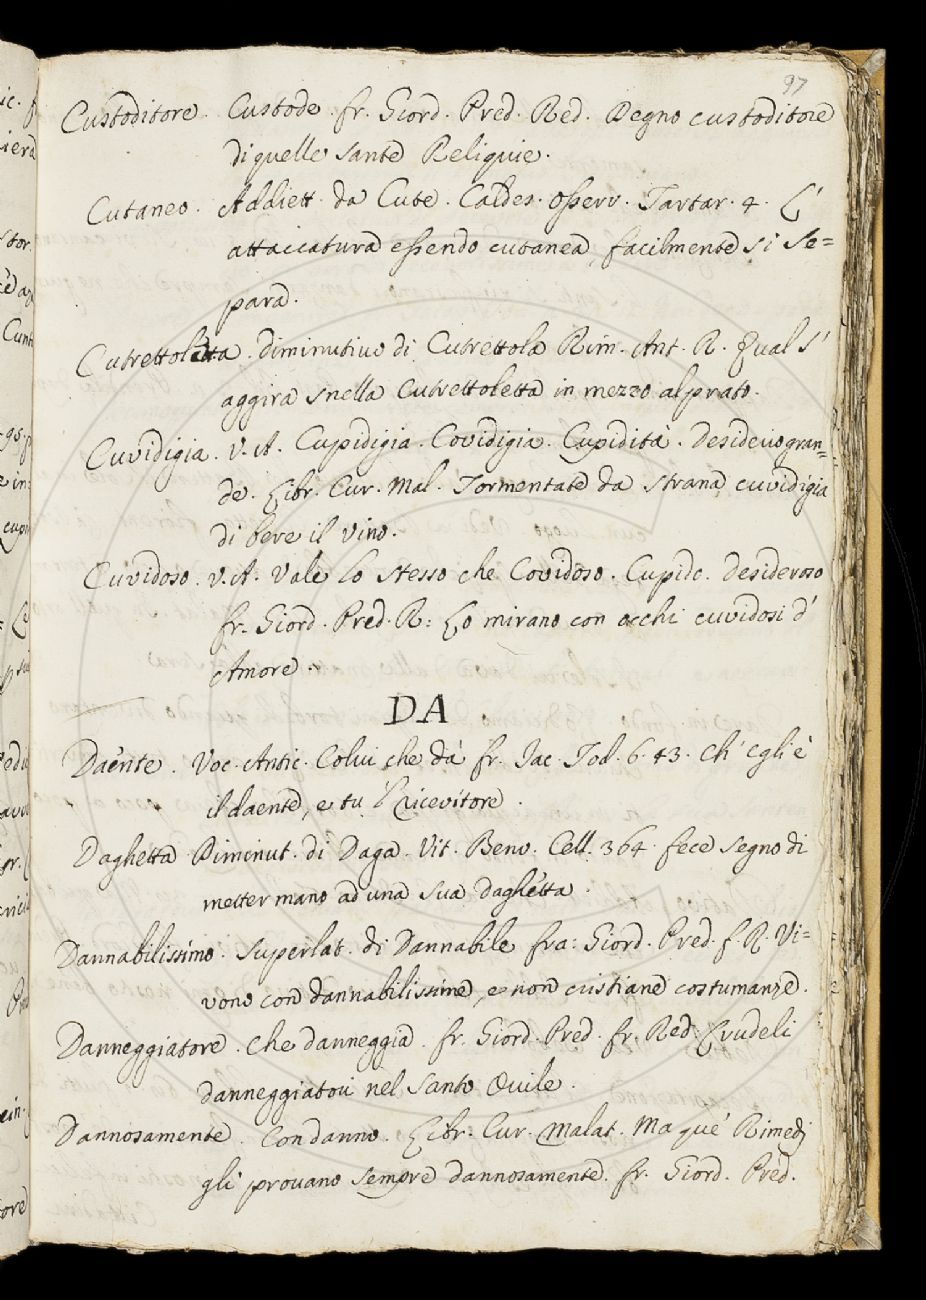 97
Custoditore. Custode. fr. Giord. Pred. Red. Degno custoditore
di quelle sante Reliquie.
Cutaneo. Addiett. da Cute. Caldes. Osserv. Tartar. 4. L'
attaccatura essendo cutanea, facilmente si se=
para.
Cutrettoletta. diminutivo di Cutrettola Rim. Ant. R. Qual s'
aggira snella Cutrettoletta in mezzo al prato.
Cuvidigia. V. A. Cupidigia. Covidigia. Cupidità. desiderio gran=
de. Libr. Cur. Mal. Tormentate da strana cuvidigia
di bere il vino.
Cuvidoso. V. A. Vale lo stesso che Covidoso. Cupido. desideroso
fr. Giord. Pred. R: Lo mirano con occhi cuvidosi d'
Amore.
DA
Daénte. Voc. Antic. Colui che dà fr. Jac. Tod. 6. 43. Ch' egli è
il daente, e tu 'l ricevitore.
Daghetta Diminut. di Daga. Vit. Benv. Cell. 364. fece segno di
metter mano ad una sua daghetta.
Dannabilissimo. Superlat. di Dannabile fra: Giord. Pred. f. R. Vi=
vono con dannabilissime, e non cristiane costumanze.
Danneggiatore. Che danneggia. fr. Giord. Pred. fr. Red. Crudeli
danneggiatori nel santo Ovile.
Dannosamente. Con danno. Libr. Cur. Malat. Ma que' Rimedj
gli provano sempre dannosamente. fr. Giord. Pred.